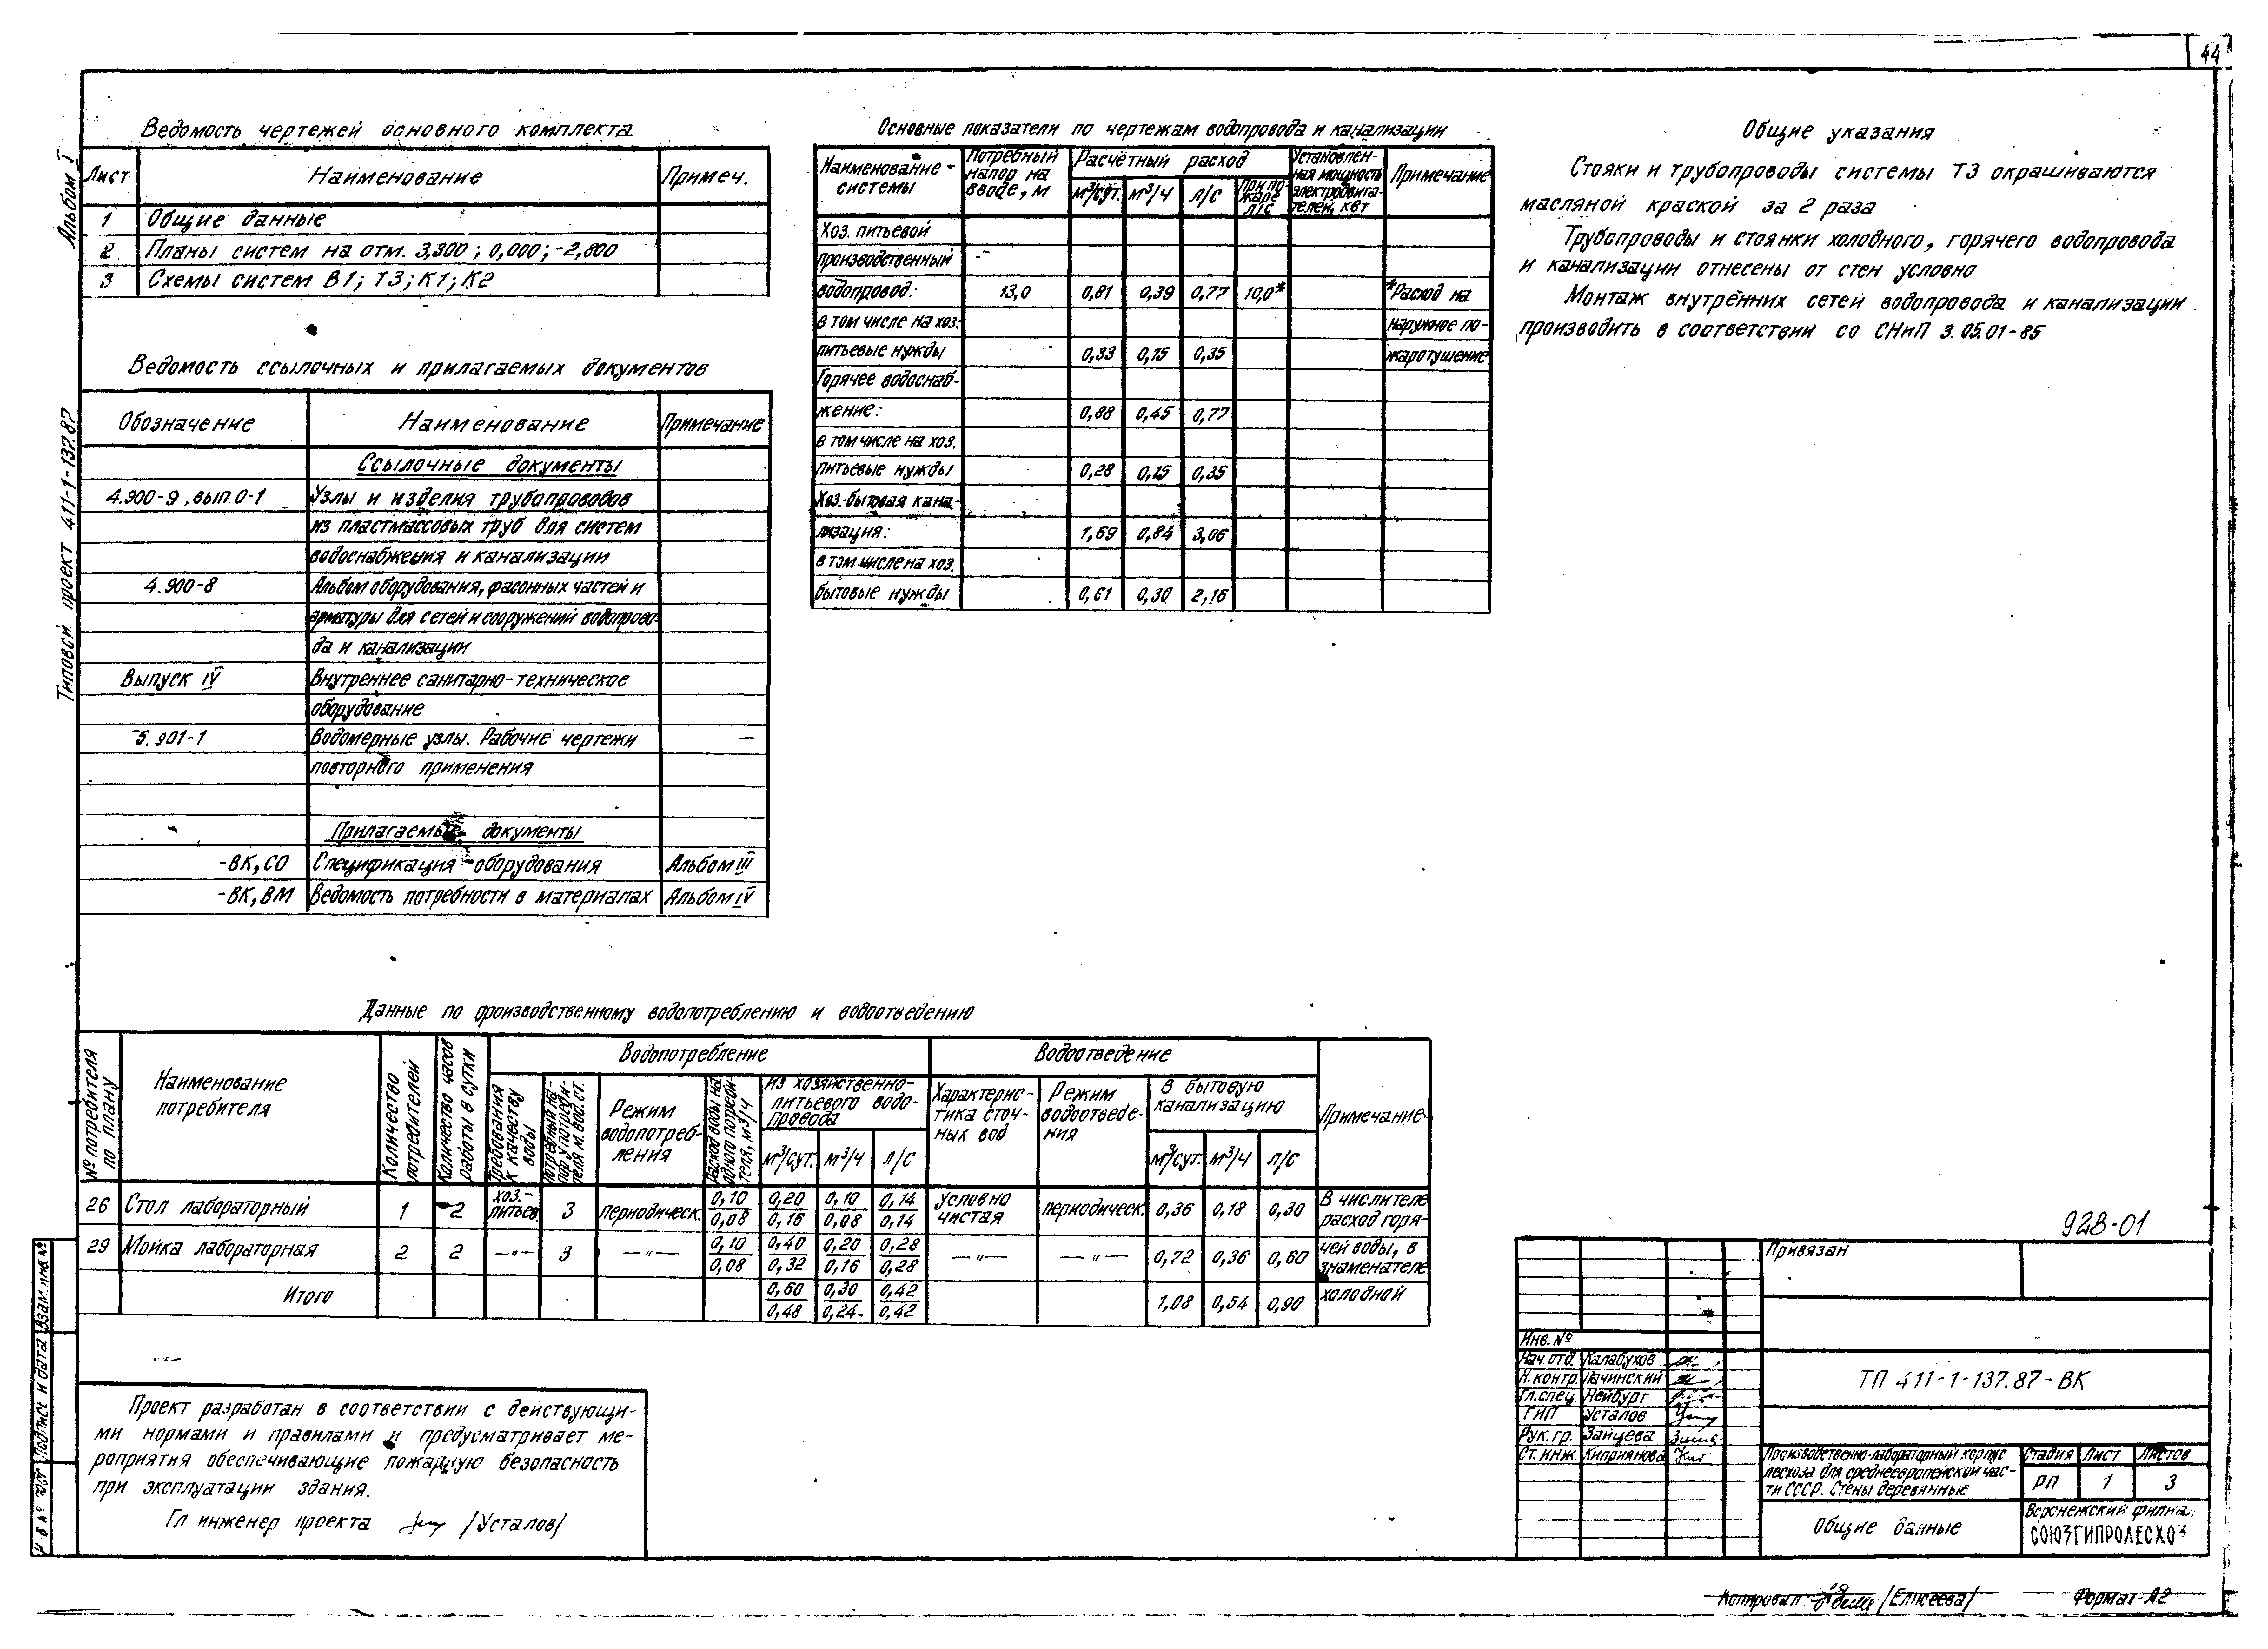 44
Альбом I
Типовой проект 411-1-137.87
Ведомость чертежей основного комплекта
Лист Наименование Примеч.
1 Общие данные
2 Планы систем на отм. 3,300; 0,000; -2,800
3 Схемы систем В1; Т3; К1; К2
Ведомость ссылочных и прилагаемых документов
Обозначение Наименование Примечание
Ссылочные документы
4.900-9, вып. 0-1 Узлы и изделия трубопроводов
из пластмассовых труб для систем
водоснабжения и канализации
4.900-8 Альбом оборудования, фасонных частей и
арматуры для сетей и сооружений водопрово-
да и канализации
Выпуск IV Внутреннее санитарно-техническое
оборудование
5.901-1 Водомерные узлы. Рабочие чертежи —
повторного применения
Прилагаемые документы
-ВК, СО Спецификация оборудования Альбом III
-ВК, ВМ Ведомость потребности в материалах Альбом IV
Основные показатели по чертежам водопровода и канализации
Наименование системы
Потребный напор на вводе, м
Расчетный расход
м³/сут. м³/ч л/с При пожаре л/с
Установлен-
ная мощность
электродвига-
телей, квт
Примечание
Хоз. питьевой
производственный
водопровод: 13,0 0,81 0,39 0,77 10,0* *Расход на
в том числе на хоз. наружное по-
питьевые нужды 0,33 0,15 0,35 жаротушение
Горячее водоснаб-
жение: 0,88 0,45 0,77
в том числе на хоз.
питьевые нужды 0,28 0,15 0,35
Хоз.-бытовая кана-
лизация: 1,69 0,84 3,06
в том числе на хоз.
бытовые нужды 0,61 0,30 2,16
Общие указания
Стояки и трубопроводы системы Т3 окрашиваются
масляной краской за 2 раза
Трубопроводы и стоянки холодного, горячего водопровода
и канализации отнесены от стен условно
Монтаж внутренних сетей водопровода и канализации
производить в соответствии со СНиП 3.05.01-85
Данные по производственному водопотреблению и водоотведению
№ потребителя по плану
Наименование
потребителя
Количество потребителей
Количество часов работы в сутки
Водопотребление
Требования к качеству воды
Потребный на-
пор у потреби-
теля м. вод. ст.
Режим
водопотреб-
ления
Расход воды на
одного потреби-
теля, м³/ч
Из хозяйственно-
питьевого водо-
провода
м³/сут. м³/ч л/с
Водоотведение
Характерис-
тика сточ-
ных вод
Режим
водоотведе-
ния
в бытовую
канализацию
м³/сут. м³/ч л/с
Примечание
26 Стол лабораторный 1 2 хоз.-питьев. 3 периодическ. 0,10/0,08 0,20/0,16 0,10/0,08 0,14/0,14 условно чистая периодическ. 0,36 0,18 0,30 В числителе расход горя-
29 Мойка лабораторная 2 2 —"— 3 —"— 0,10/0,08 0,40/0,32 0,20/0,16 0,28/0,28 —"— —"— 0,72 0,36 0,60 чей воды, в знаменателе
Итого 0,60/0,48 0,30/0,24 0,42/0,42 1,08 0,54 0,90 холодной
Проект разработан в соответствии с действующи-
ми нормами и правилами и предусматривает ме-
роприятия обеспечивающие пожарную безопасность
при эксплуатации здания.
Гл. инженер проекта /Усталов/
Взам. инв. №
Подпись и дата
Инв № подл
928-01
Привязан
Инв. №
Нач. отд. Калабухов
Н. контр. Пачинский
Гл. спец. Нейбург
ГИП Усталов
Рук. гр. Зайцева
Ст. инж. Киприянова
ТП 411-1-137.87-ВК
Производственно-лабораторный корпус
лесхоза для среднеевропейской час-
ти СССР. Стены деревянные
Стадия Лист Листов
РП 1 3
Общие данные
Воронежский филиал
СОЮЗГИПРОЛЕСХОЗ
Копировал /Елисеева/
Формат А2